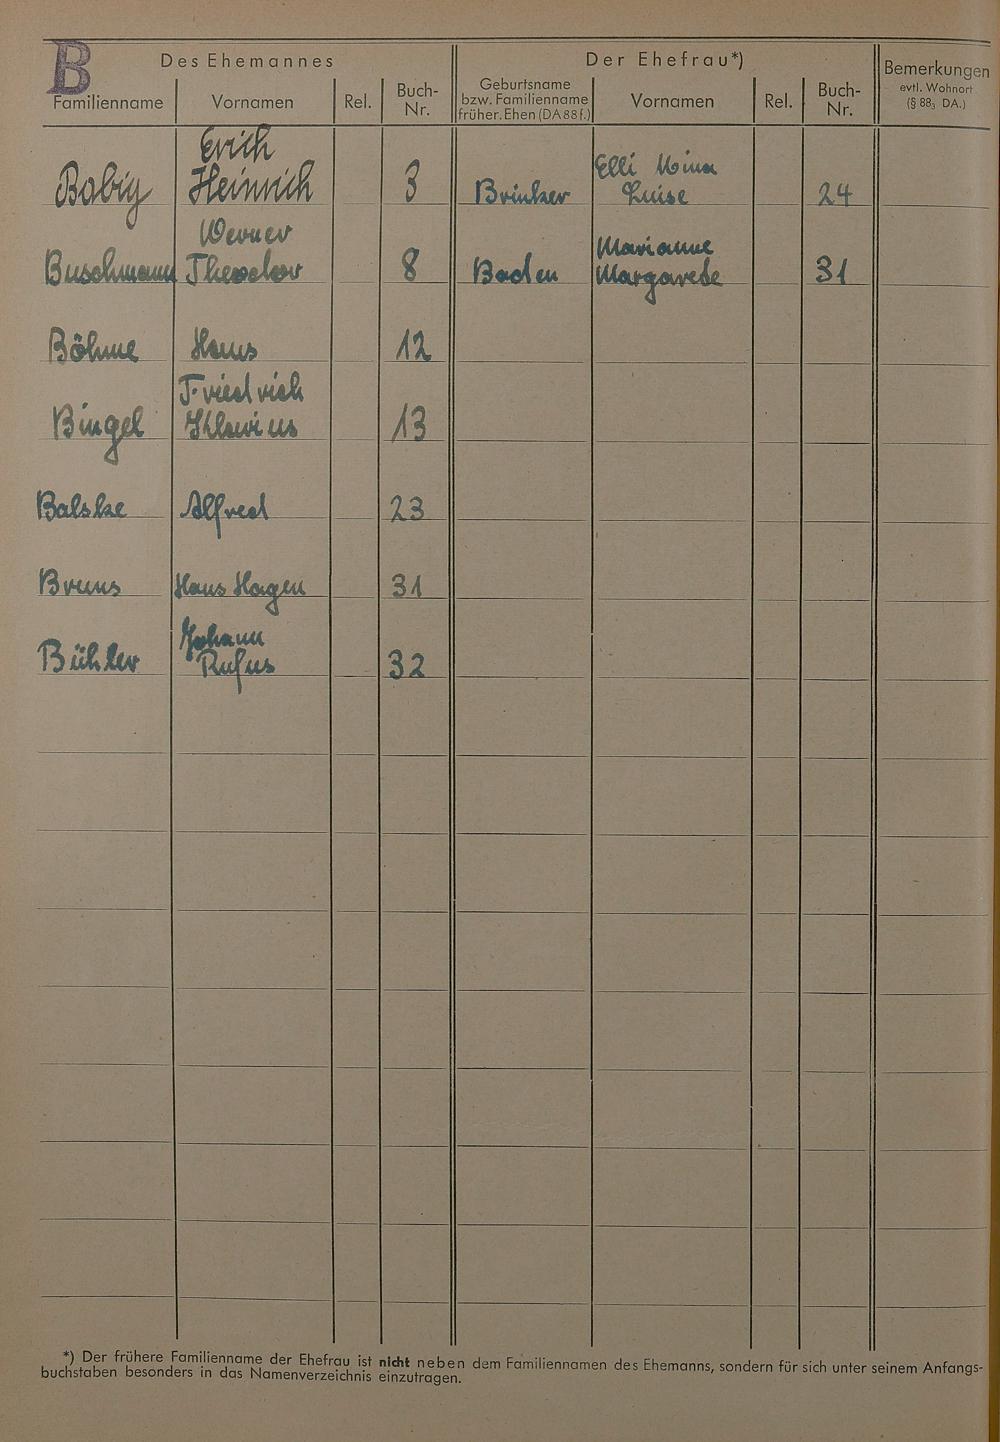 B
Des Ehemannes
Der Ehefrau*)
Bemerkungen
evtl. Wohnort
(§ 88₃ DA.)
Familienname
Vornamen
Rel.
Buch-
Nr.
Geburtsname
bzw. Familienname
früher. Ehen (DA 88 f.)
Vornamen
Rel.
Buch-
Nr.
Erich
Babig Heinrich 3
Elli Mina
Brinker Luise 24
Werner
Buschmann Theodor 8
Marianne
Baden Margarete 31
Böhme Hans 12
Friedrich
Bingel 13
Balske Alfred 23
Bruns Hans Hagen 31
Johann
Bühler Rufus 32
*) Der frühere Familienname der Ehefrau ist nicht neben dem Familiennamen des Ehemanns, sondern für sich unter seinem Anfangs-
buchstaben besonders in das Namenverzeichnis einzutragen.